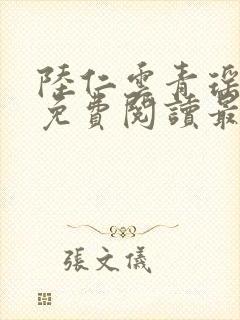 陸仁雲青瑤
免費閱讀最
張文儀